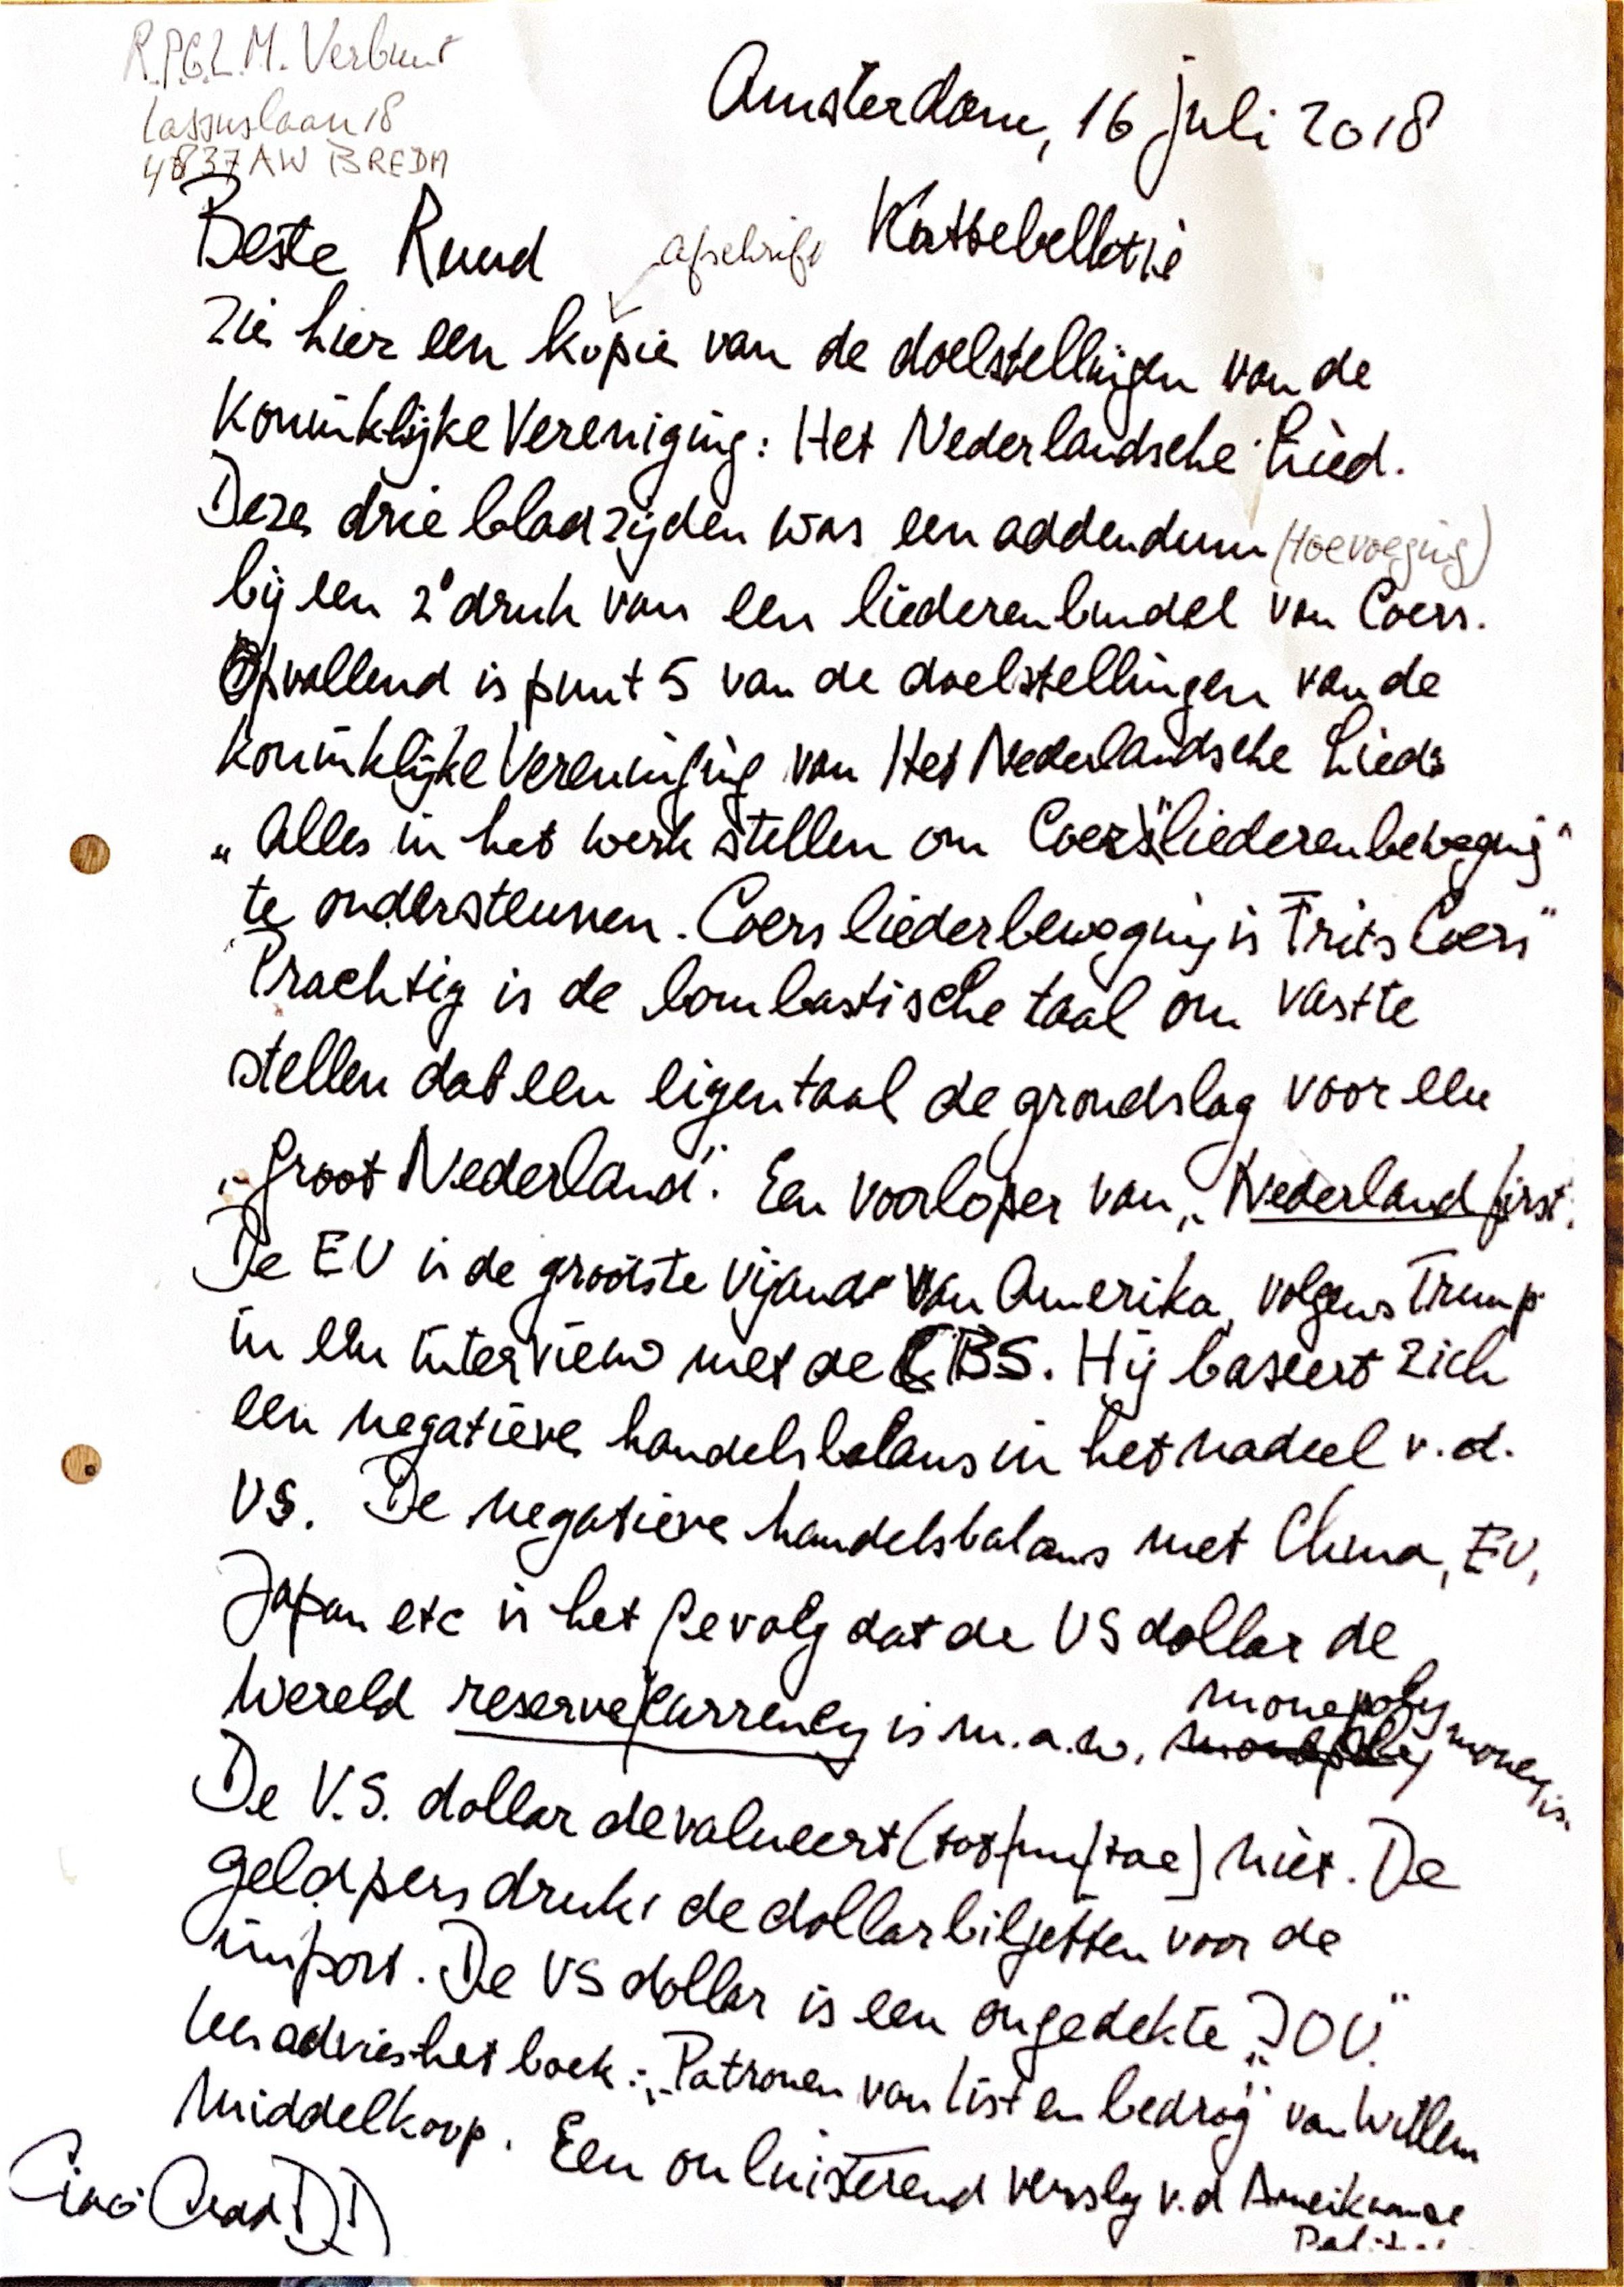 R.P.G.L.M. Verbunt
Lassuslaan 18
4837AW BREDA
Amsterdam, 16 juli 2018
Beste Ruud afschrift Kattebelletje
Zie hier een kopie van de doelstellingen van de
Koninklijke Vereniging: Het Nederlandsche Lied.
Deze drie bladzijden was een addendum (toevoeging)
bij een 2e druk van een liederenbundel van Coers.
Opvallend is punt 5 van de doelstellingen van de
Koninklijke Vereniging van Het Nederlandsche Lied:
„Alles in het werk stellen om Coers "liederenbeweging"
te ondersteunen. Coers liederbeweging is Frits Coers"
Prachtig is de bombastische taal om vast te
stellen dat een eigen taal de grondslag voor een
„Groot Nederland". Een voorloper van „Nederland first.
De EU is de grootste vijand van Amerika, volgens Trump
in een interview met de CBS. Hij baseert zich
een negatieve handelsbalans in het nadeel v.d.
VS. De negatieve handelsbalans met China, EU,
Japan etc is het gevolg dat de US dollar de
wereld reserve/currency is m.a.w. monopoly money is.
De V.S. dollar devalueert (tot/nu/toe) niet. De
geldpers drukt de dollarbiljetten voor de
import. De VS dollar is een ongedekte „IOU."
Leesadvies het boek: „Patronen van list en bedrog" van Willem
Middelkoop. Een onluisterend verslag v.d Amerikaanse
Ciao